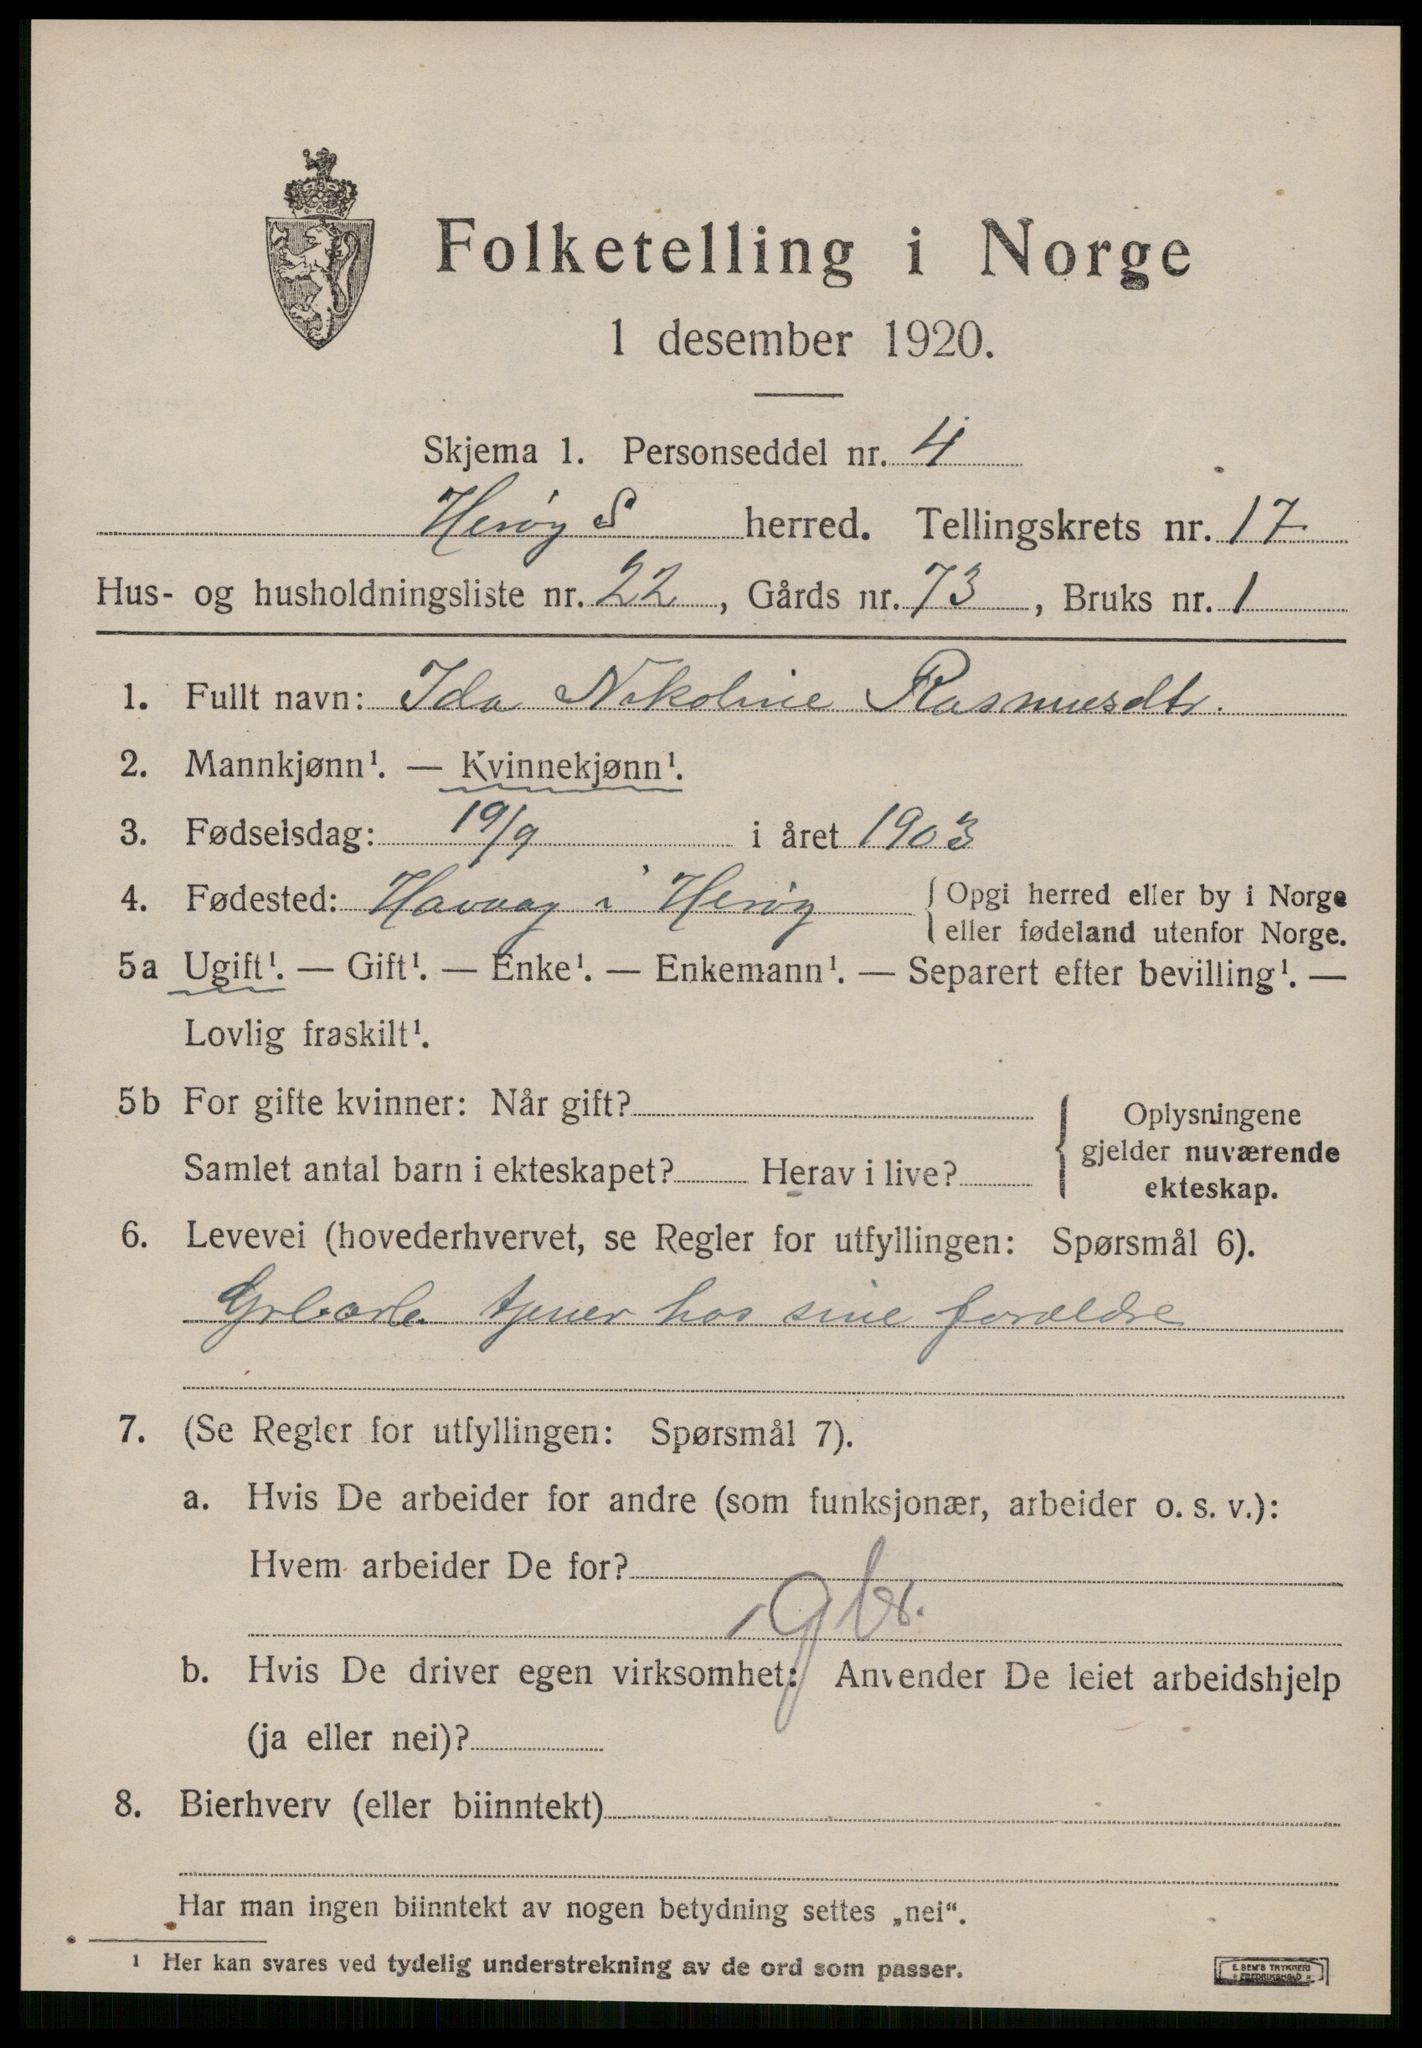 Folketelling i Norge
1 desember 1920.
Skjema 1. Personseddel nr. 4
Herøy S herred. Tellingskrets nr. 17
Hus- og husholdningsliste nr. 22, Gårds nr. 73, Bruks nr. 1
1. Fullt navn: Ida Nikoline Rasmusdtr.
2. Mannkjønn¹. — Kvinnekjønn¹.
3. Fødselsdag: 19/9 i året 1903
4. Fødested: Havaag i Herøy { Opgi herred eller by i Norge
eller fødeland utenfor Norge.
5a Ugift¹. — Gift¹. — Enke¹. — Enkemann¹. — Separert efter bevilling¹. —
Lovlig fraskilt¹.
5b For gifte kvinner: Når gift?
Samlet antal barn i ekteskapet? Herav i live?
Oplysningene
gjelder nuværende
ekteskap.
6. Levevei (hovederhvervet, se Regler for utfyllingen: Spørsmål 6).
tjener hos sine forældre
7. (Se Regler for utfyllingen: Spørsmål 7).
a. Hvis De arbeider for andre (som funksjonær, arbeider o. s. v.):
Hvem arbeider De for?
gbr.
b. Hvis De driver egen virksomhet: Anvender De leiet arbeidshjelp
(ja eller nei)?
8. Bierhverv (eller biinntekt)
Har man ingen biinntekt av nogen betydning settes „nei“.
¹ Her kan svares ved tydelig understrekning av de ord som passer.
E. SEM'S TRYKKERI
FREDRIKSHALD